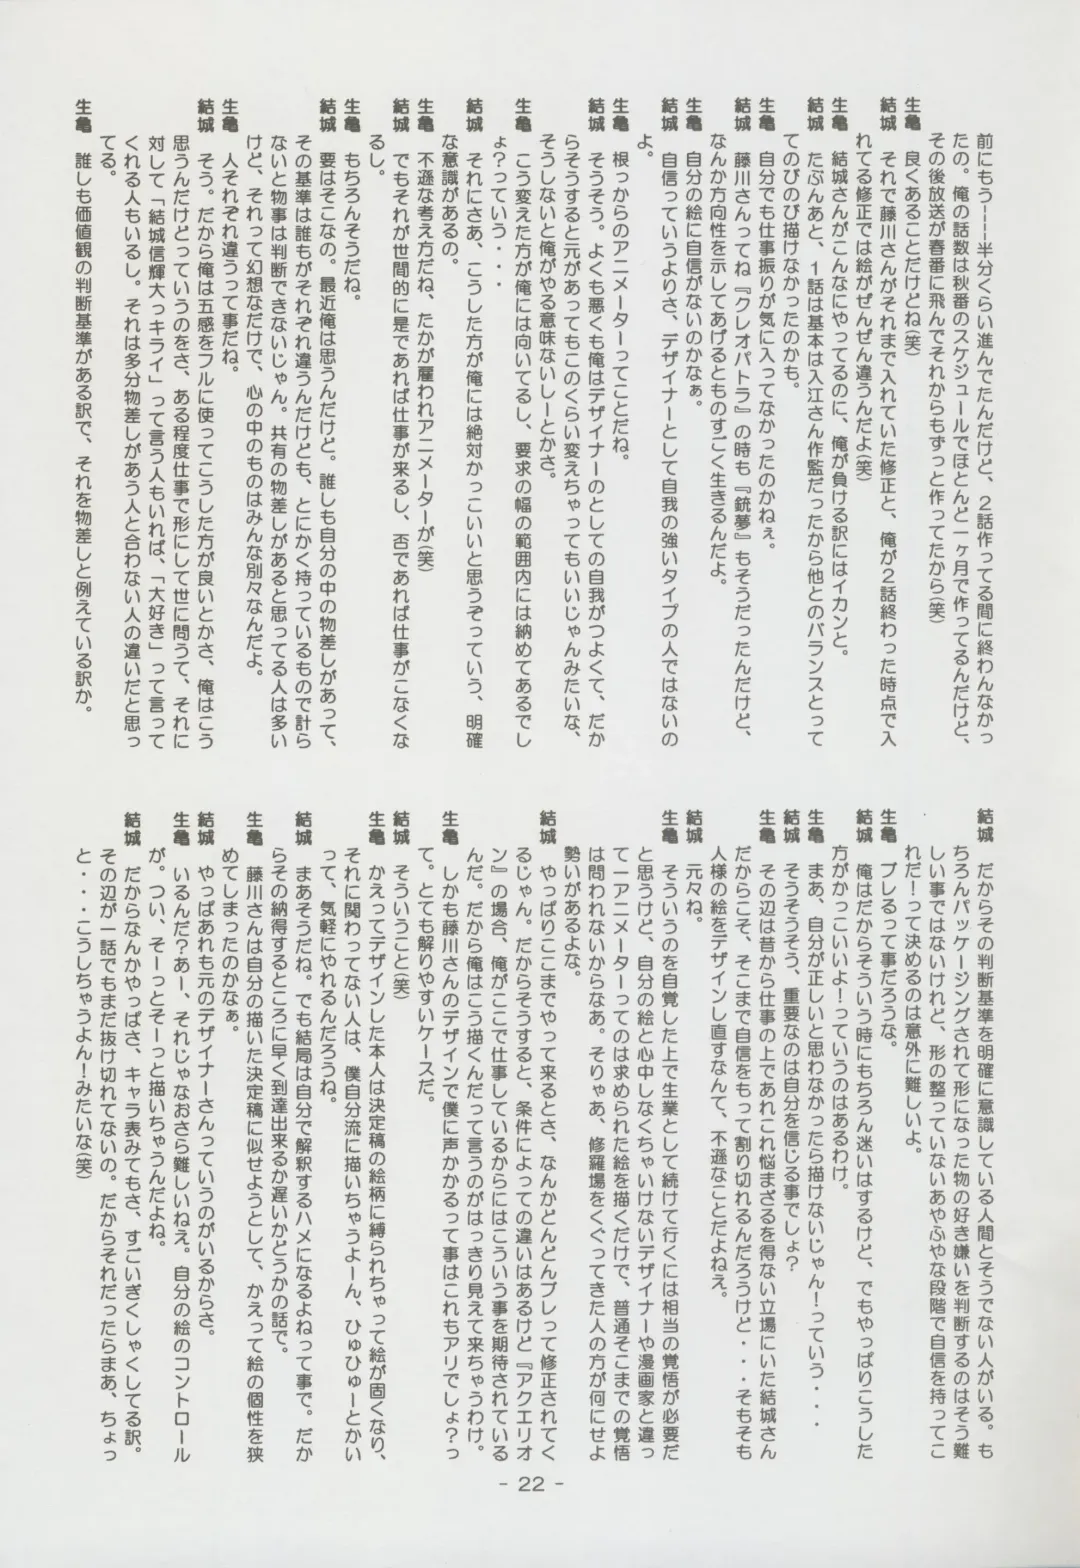 前にもう――半分くらい進んでたんだけど、２話作ってる間に終わんなかっ
たの。俺の話数は秋番のスケジュールでほとんど一ヶ月で作ってるんだけど、
その後放送が春番に飛んでそれからもずっと作ってたから(笑)
生亀　良くあることだけどね(笑)
結城　それで藤川さんがそれまで入れていた修正と、俺が２話終わった時点で入
れてる修正では絵がぜんぜん違うんだよ(笑)
生亀　結城さんがこんなにやってるのに、俺が負ける訳にはイカンと。
結城　たぶんあと、１話は基本は入江さん作監だったから他とのバランスとって
てのびのび描けなかったのかも。
生亀　自分でも仕事振りが気に入ってなかったのかねぇ。
結城　藤川さんってね『クレオパトラ』の時も『銃夢』もそうだったんだけど、
なんか方向性を示してあげるとものすごく生きるんだよ。
生亀　自分の絵に自信がないのかなぁ。
結城　自信っていうよりさ、デザイナーとして自我の強いタイプの人ではないの
よ。
生亀　根っからのアニメーターってことだね。
結城　そうそう。よくも悪くも俺はデザイナーのとしての自我がつよくて、だか
らそうすると元があってもこのくらい変えちゃってもいいじゃんみたいな、
そうしないと俺がやる意味ないしーとかさ。
生亀　こう変えた方が俺には向いてるし、要求の幅の範囲内には納めてあるでし
ょ？っていう・・・
結城　それにさあ、こうした方が俺には絶対かっこいいと思うぞっていう、明確
な意識があるの。
生亀　不遜な考え方だね、たかが雇われアニメーターが(笑)
結城　でもそれが世間的に是であれば仕事が来るし、否であれば仕事がこなくな
るし。
生亀　もちろんそうだね。
結城　要はそこなの。最近俺は思うんだけど。誰しも自分の中の物差しがあって、
その基準は誰もがそれぞれ違うんだけども、とにかく持っているもので計ら
ないと物事は判断できないじゃん。共有の物差しがあると思ってる人は多い
けど、それって幻想なだけで、心の中のものはみんな別々なんだよ。
生亀　人それぞれ違うって事だね。
結城　そう。だから俺は五感をフルに使ってこうした方が良いとかさ、俺はこう
思うんだけどっていうのをさ、ある程度仕事で形にして世に問うて、それに
対して「結城信輝大っキライ」って言う人もいれば、「大好き」って言って
くれる人もいるし。それは多分物差しがあう人と合わない人の違いだと思っ
てる。
生亀　誰しも価値観の判断基準がある訳で、それを物差しと例えている訳か。
結城　だからその判断基準を明確に意識している人間とそうでない人がいる。も
ちろんパッケージングされて形になった物の好き嫌いを判断するのはそう難
しい事ではないけれど、形の整っていないあやふやな段階で自信を持ってこ
れだ！って決めるのは意外に難しいよ。
生亀　ブレるって事だろうな。
結城　俺はだからそういう時にもちろん迷いはするけど、でもやっぱりこうした
方がかっこいいよ！っていうのはあるわけ。
生亀　まあ、自分が正しいと思わなかったら描けないじゃん！っていう・・・
結城　そうそうそう、重要なのは自分を信じる事でしょ？
生亀　その辺は昔から仕事の上であれこれ悩まざるを得ない立場にいた結城さん
だからこそ、そこまで自信をもって割り切れるんだろうけど・・・そもそも
人様の絵をデザインし直すなんて、不遜なことだよねえ。
結城　元々ね。
生亀　そういうのを自覚した上で生業として続けて行くには相当の覚悟が必要だ
と思うけど、自分の絵と心中しなくちゃいけないデザイナーや漫画家と違っ
て一アニメーターってのは求められた絵を描くだけで、普通そこまでの覚悟
は問われないからなあ。そりゃあ、修羅場をくぐってきた人の方が何にせよ
勢いがあるよな。
結城　やっぱりここまでやって来るとさ、なんかどんどんブレって修正されてく
るじゃん。だからそうすると、条件によっての違いはあるけど『アクエリオ
ン』の場合、俺がここで仕事しているからにはこういう事を期待されている
んだ。だから俺はこう描くんだって言うのがはっきり見えて来ちゃうわけ。
生亀　しかも藤川さんのデザインで僕に声かかるって事はこれもアリでしょ？っ
て。とても解りやすいケースだ。
結城　そういうこと(笑)
生亀　かえってデザインした本人は決定稿の絵柄に縛られちゃって絵が固くなり、
それに関わってない人は、僕自分流に描いちゃうよーん、ひゅひゅーとかい
って、気軽にやれるんだろうね。
結城　まあそうだね。でも結局は自分で解釈するハメになるよねって事で。だか
らその納得するところに早く到達出来るか遅いかどうかの話で。
生亀　藤川さんは自分の描いた決定稿に似せようとして、かえって絵の個性を狭
めてしまったのかなぁ。
結城　やっぱあれも元のデザイナーさんっていうのがいるからさ。
生亀　いるんだ？あー、それじゃなおさら難しいねえ。自分の絵のコントロール
が。つい、そーっとそーっと描いちゃうんだよね。
結城　だからなんかやっぱさ、キャラ表みてもさ、すごいぎくしゃくしてる訳。
その辺が一話でもまだ抜け切れてないの。だからそれだったらまあ、ちょっ
と・・・こうしちゃうよん！みたいな(笑)
- 22 -